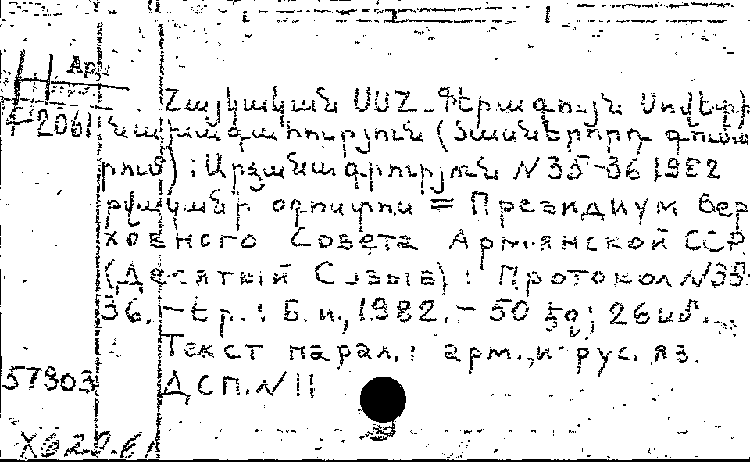 Ар.
Հայկական ՍՍՀ Գերագույն Սովետի
4-2061 նախագահություն (Տասներորդ գումա
րում) : Արձանագրություն N 35-36 1982
թվականի օգոստոս = Президиум Вер
ховного Совета Армянской ССР
(Десятый Созыв) : Протокол N 35-
36. - Եր. : Б. и., 1982. - 50 էջ; 26 սմ.
Текст парал.: арм. и рус. яз.
57903 ДСП. N 11
X620.61